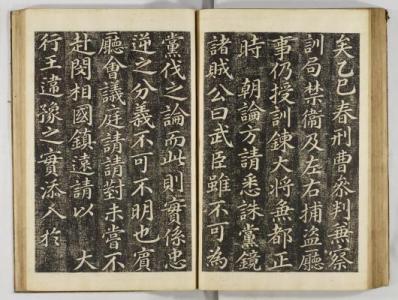 矣乙巳春刑曹叅判兼察
訓局禁衛及左右捕盜廳
事仍授訓鍊大將兼都正
時 朝論方請悉誅黨鏡
諸賊公曰武臣雖不可為
黨伐之論而此則實係忠
逆之分義不可不明也賓
廳會議庭請請對未嘗不
赴閔相國鎮遠請以 大
行王違豫之實添入於